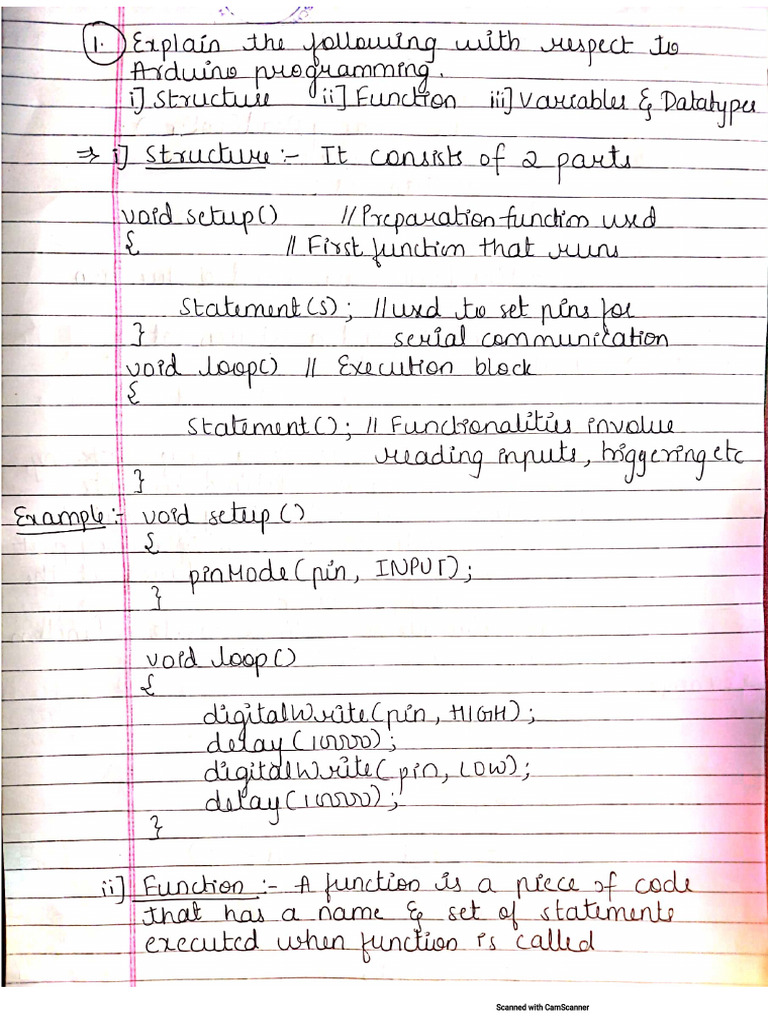 1. Explain the following with respect to
Arduino programming.
i] Structure ii] Function iii] Variables & Datatypes
⇒ i] Structure :- It consists of 2 parts
void setup() // Preparation function used
{ // First function that runs
Statement(s); // used to set pins for
} serial communication
void loop() // Execution block
{
Statement(); // Functionalities involve
reading inputs, triggering etc
}
Example :- void setup()
{
pinMode(pin, INPUT);
}
void loop()
{
digitalWrite(pin, HIGH);
delay(10000);
digitalWrite(pin, LOW);
delay(10000);
}
ii] Function :- A function is a piece of code
that has a name & set of statements
executed when function is called
Scanned with CamScanner